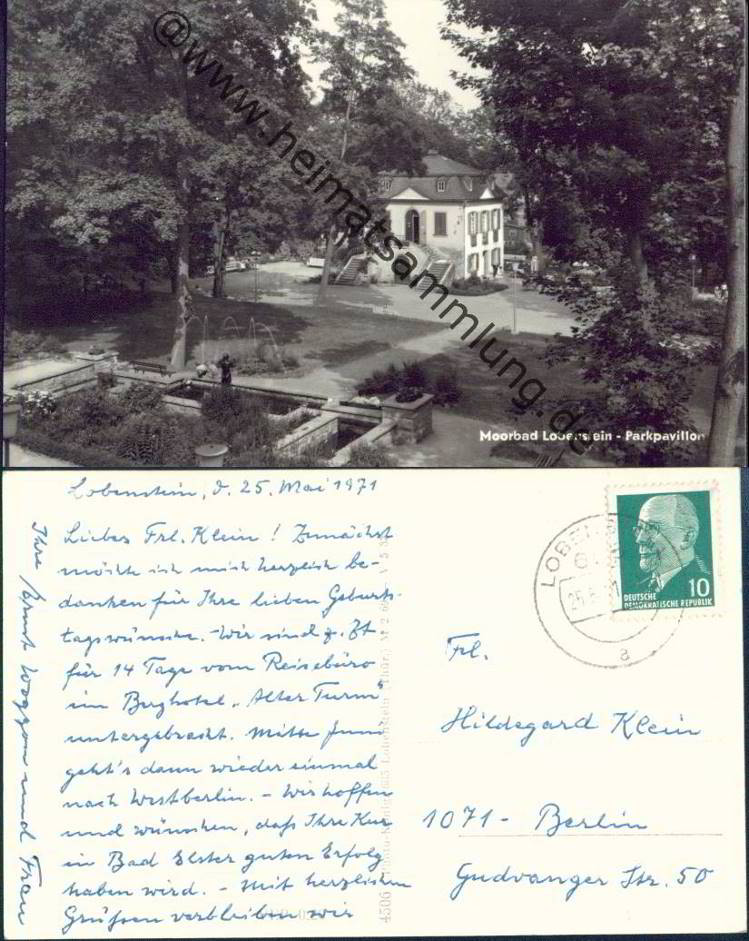 @www.heimatsammlung.de
Moorbad Lobenstein - Parkpavillon
Lobenstein, d. 25. Mai 1971
Liebes Frl. Klein! Zunächst
möchte ich mich herzlich be-
danken für Ihre lieben Geburts-
tagswünsche. - Wir sind z. Zt.
für 14 Tage vom Reisebüro
im Berghotel „Alter Turm"
untergebracht. Mitte Juni
geht's dann wieder einmal
nach Westberlin. - Wir hoffen
und wünschen, daß Ihre Kur
in Bad Elster guten Erfolg
haben wird. - Mit herzlichen
Grüßen verbleiben wir
Ihre Ernst und Frau
LOBEN
a
10
DEUTSCHE
DEMOKRATISCHE REPUBLIK
Frl.
Hildegard Klein
1071 - Berlin
Gudvanger Str. 50